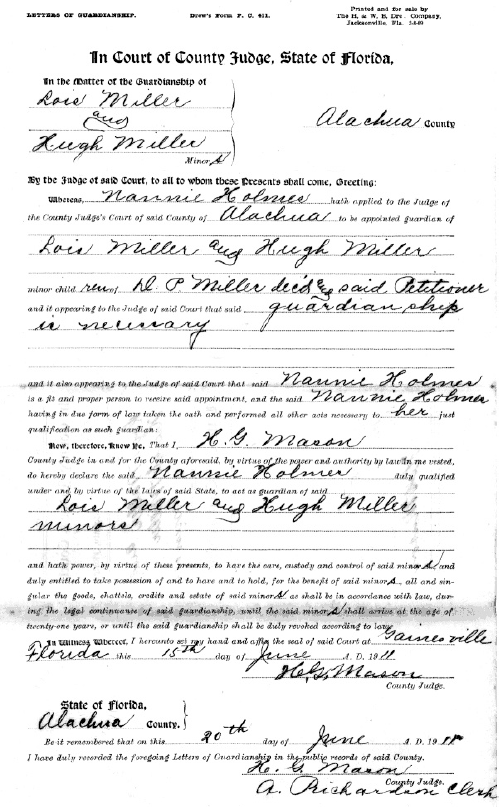 LETTERS OF GUARDIANSHIP. Drew's Form P. C. 401. Printed and for sale by
The H. & W. B. Drew Company,
Jacksonville, Fla.
In Court of County Judge, State of Florida,
In the Matter of the Guardianship of
Lois Miller
and
Hugh Miller
Minor s
Alachua County
By the Judge of said Court, to all to whom these Presents shall come, Greeting:
Whereas, Nannie Holmes hath applied to the Judge of
the County Judge's Court of said County of Alachua to be appointed guardian of
Lois Miller and Hugh Miller
minor child ren of D. P Miller dec'd and said Petitioner
and it appearing to the Judge of said Court that said guardianship
is necessary
and it also appearing to the Judge of said Court that said Nannie Holmes
is a fit and proper person to receive said appointment, and the said Nannie Holmes
having in due form of law taken the oath and performed all other acts necessary to her just
qualification as such guardian:
Now, therefore, Know Ye, That I, H. G. Mason
County Judge in and for the County aforesaid, by virtue of the power and authority by law in me vested,
do hereby declare the said Nannie Holmes duly qualified
under and by virtue of the laws of said State, to act as guardian of said
Lois Miller and Hugh Miller
minors
and hath power, by virtue of these presents, to have the care, custody and control of said minor s and
duly entitled to take possession of and to have and to hold, for the benefit of said minor s, all and sin-
gular the goods, chattels, credits and estate of said minor s as shall be in accordance with law, dur-
ing the legal continuance of said guardianship, until the said minor s shall arrive at the age of
twenty-one years, or until the said guardianship shall be duly revoked according to law.
In Witness Whereof, I hereunto set my hand and affix the seal of said Court at Gainesville
Florida this 15th day of June A. D. 1911
H. G. Mason
County Judge.
State of Florida,
Alachua County.
Be it remembered that on this 20th day of June A. D. 1911
I have duly recorded the foregoing Letters of Guardianship in the public records of said County.
H. G. Mason
County Judge.
A. Richardson Clerk